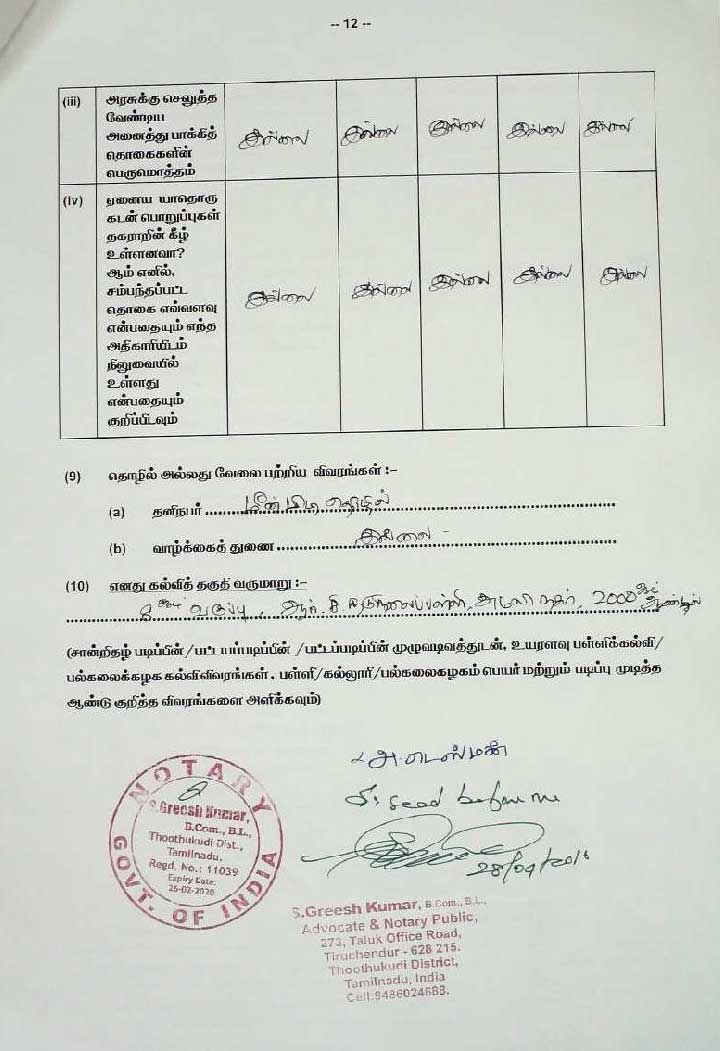 -- 12 --
(iii) அரசுக்கு செலுத்த
வேண்டிய
அனைத்து பாக்கித்
தொகைகளின்
பெருமொத்தம்
இல்லை இல்லை இல்லை இல்லை இல்லை
(iv) ஏனைய யாதொரு
கடன் பொறுப்புகள்
தகராறின் கீழ்
உள்ளனவா?
ஆம் எனில்,
சம்பந்தப்பட்ட
தொகை எவ்வளவு
என்பதையும் எந்த
அதிகாரியிடம்
நிலுவையில்
உள்ளது
என்பதையும்
குறிப்பிடவும்
இல்லை இல்லை இல்லை இல்லை இல்லை
(9) தொழில் அல்லது வேலை பற்றிய விவரங்கள் :-
(a) தனிநபர் மீன்பிடி தொழில்
(b) வாழ்க்கைத் துணை இல்லை -
(10) எனது கல்வித் தகுதி வருமாறு :-
8 வகுப்பு, ஆர்.சி. நடுநிலைப்பள்ளி, அமலி நகர், 2000 ஆண்டில்
(சான்றிதழ் படிப்பின்/பட்டயப்படிப்பின் /பட்டப்படிப்பின் முழுவடிவத்துடன், உயரளவு பள்ளிக்கல்வி/
பல்கலைக்கழக கல்விவிவரங்கள். பள்ளி/கல்லூரி/பல்கலைகழகம் பெயர் மற்றும் படிப்பு முடித்த
ஆண்டு குறித்த விவரங்களை அளிக்கவும்)
அ.டெஸ்மன்
before me
NOTARY
S.Greesh Kumar,
B.Com., B.L.,
Thoothukudi Dist.,
Tamilnadu,
Regd. No.: 11039
Expiry Date:
25-02-2020
GOVT. OF INDIA
S.Greesh Kumar, B.Com., B.L.,
Advocate & Notary Public,
273, Taluk Office Road,
Tiruchendur - 628 215.
Thoothukudi District,
Tamilnadu, India
Cell:9486024688.